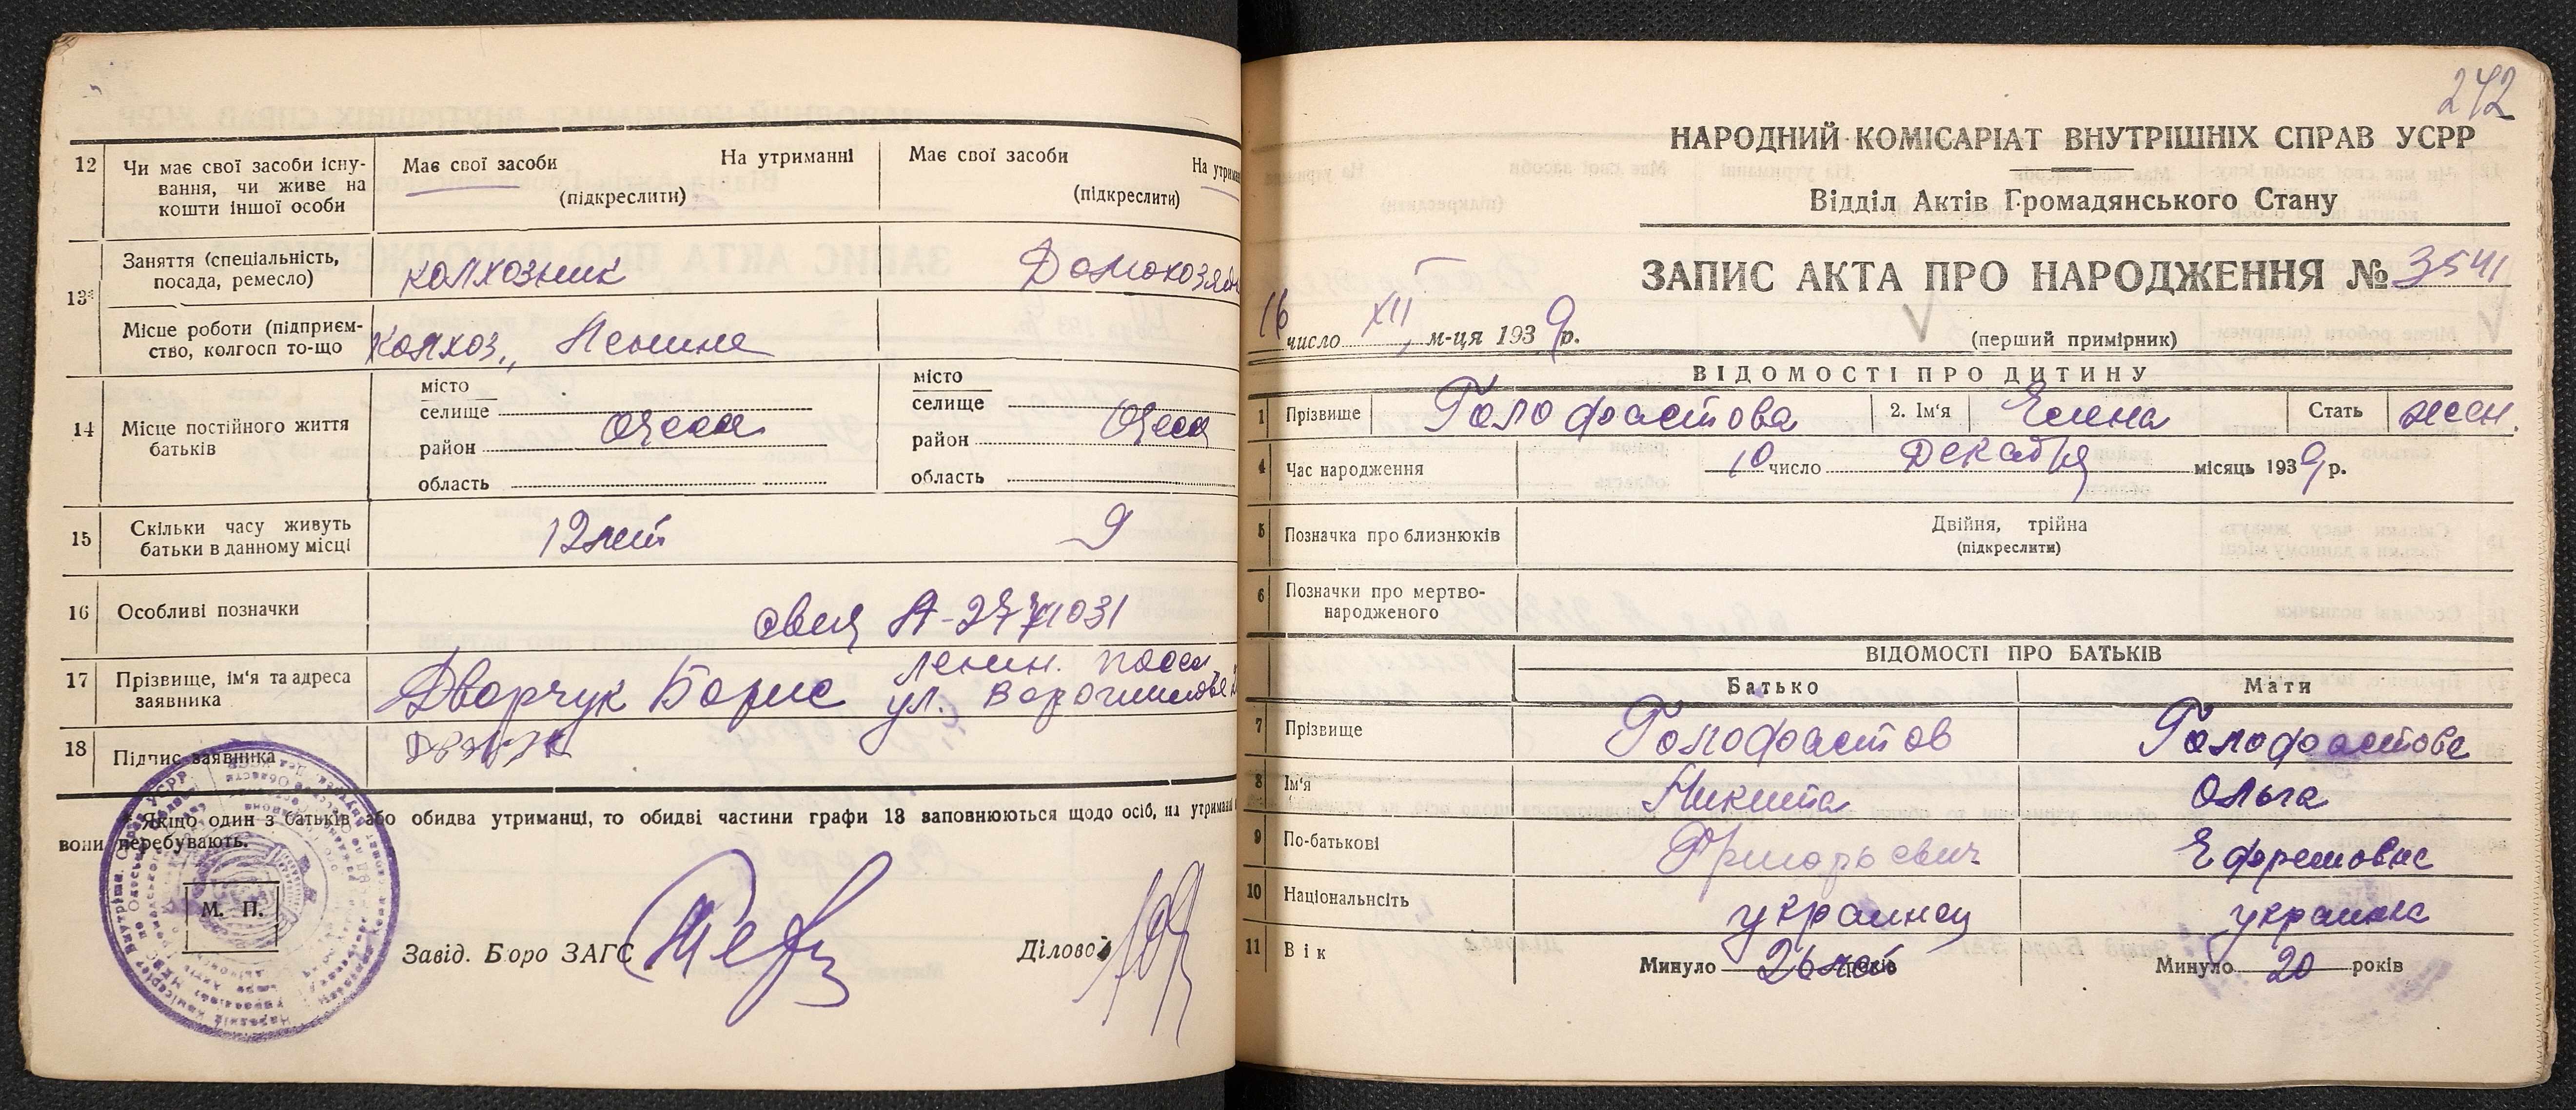 12 Чи має свої засоби існу-
вання, чи живе на
кошти іншої особи
Має свої засоби На утриманні
(підкреслити)
Має свої засоби На утриман
(підкреслити)
13* Заняття (спеціальність,
посада, ремесло)
колхозник Домохозяй
Місце роботи (підприєм-
ство, колгосп то-що
колхоз „ Ленина
14 Місце постійного життя
батьків
місто
селище
район Одеса
область
місто
селище
район Одеса
область
15 Скільки часу живуть
батьки в данному місці
12 лет 9
16 Особливі позначки
17 Прізвище, ім'я та адреса
заявника
Дворчук Борис ленин. посел
ул. Ворошилова
18 Підпис заявника
* Якщо один з батьків або обидва утриманці, то обидві частини графи 13 заповнюються щодо осіб, на утриманні
вони перебувають.
М. П.
Завід. Бюро ЗАГС Діловод
242
НАРОДНИЙ КОМІСАРІАТ ВНУТРІШНІХ СПРАВ УСРР
Відділ Актів Громадянського Стану
ЗАПИС АКТА ПРО НАРОДЖЕННЯ № 3541
16 число XII м-ця 1939 р.
(перший примірник)
ВІДОМОСТІ ПРО ДИТИНУ
1 Прізвище Голофастова 2. Ім'я Елена Стать жен.
4 Час народження 10 число Декабря місяць 1939 р.
5 Позначка про близнюків Двійня, трійна
(підкреслити)
6 Позначки про мертво-
народженого
ВІДОМОСТІ ПРО БАТЬКІВ
Батько Мати
7 Прізвище Голофастов Голофастова
8 Ім'я Никита Ольга
9 По-батькові Григорьевич Ефремовна
10 Національність украинец украинка
11 Вік Минуло 26 лет років Минуло 20 років